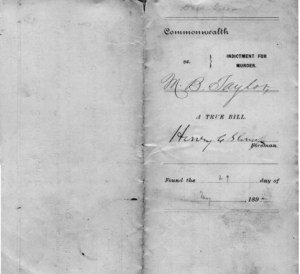 Commonwealth
vs. } INDICTMENT FOR
MURDER.
M. B. Taylor
A TRUE BILL.
Henry C
Foreman.
Found the 29 day of
189